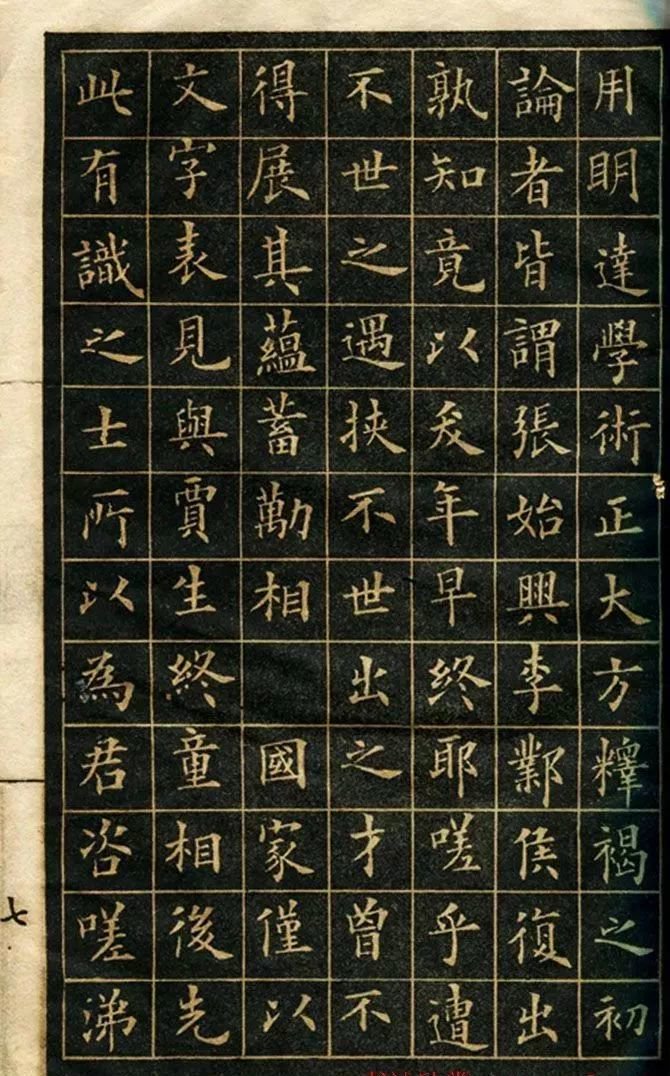 用明達學術正大方釋褐之初
論者皆謂張始興李鄴侯復出
孰知竟以年早終耶嗟乎遭
不世之遇挾不世出之才曾不
得展其蘊蓄勱相 國家僅以
文字表見與賈生終童相後先
此有識之士所以為君咨嗟涕
七